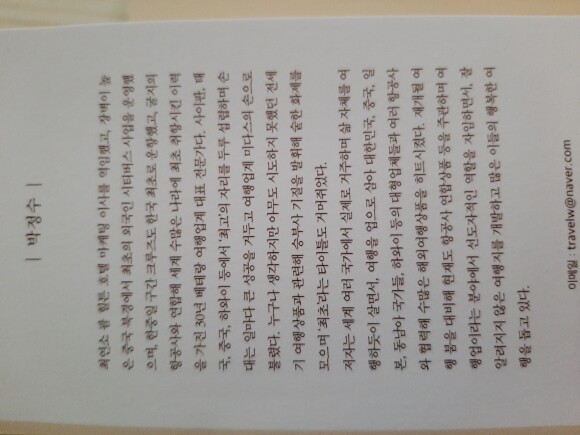 | 박정수 |
최연소 괌 힐튼 호텔 마케팅 이사를 역임했고, 장벽이 높
은 중국 북경에서 최초의 외국인 시티버스 사업을 운영했
으며, 한중일 구간 크루즈도 한국 최초로 운항했고, 굴지의
항공사와 연합해 세계 수많은 나라에 최초 취항시킨 이력
을 가진 30년 베테랑 여행업계 대표 전문가다. 사이판, 태
국, 중국, 하와이 등에서 '최고'의 자리를 두루 섭렵하며 손
대는 일마다 큰 성공을 거두고 여행업계 미다스의 손으로
불렸다. 누구나 생각하지만 아무도 시도하지 못했던 전세
기 여행상품과 관련해 승부사 기질을 발휘해 숱한 화제를
모으며 '최초'라는 타이틀도 거머쥐었다.
저자는 세계 여러 국가에서 실제로 거주하며 삶 자체를 여
행하듯이 살면서, 여행을 업으로 삼아 대한민국, 중국, 일
본, 동남아 국가들, 하와이 등의 대형업체들과 여러 항공사
와 협력해 수많은 해외여행상품을 히트시켰다. 재개될 여
행 붐을 대비해 현재도 항공사 연합상품 등을 주관하며 여
행업이라는 분야에서 선도자적인 역할을 자임하면서, 잘
알려지지 않은 여행지를 개발하고 많은 이들의 행복한 여
행을 돕고 있다.
이메일 : travelw@naver.com